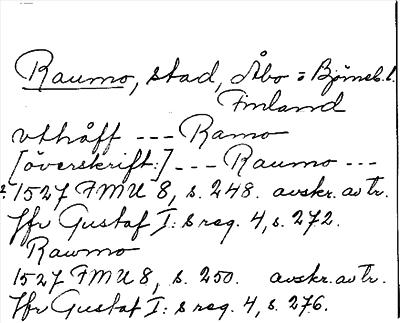 Raumo, stad, Åbo = Björneb. l.
Finland
vthåff --- Ramo
[överskrift:] --- Raumo ---
1527 FMU 8, s. 248. avskr. av tr.
Jfr Gustaf I:s reg. 4, s. 272.
Rawmo
1527 FMU 8, s. 250. avskr. av tr.
Jfr Gustaf I:s reg. 4, s. 276.